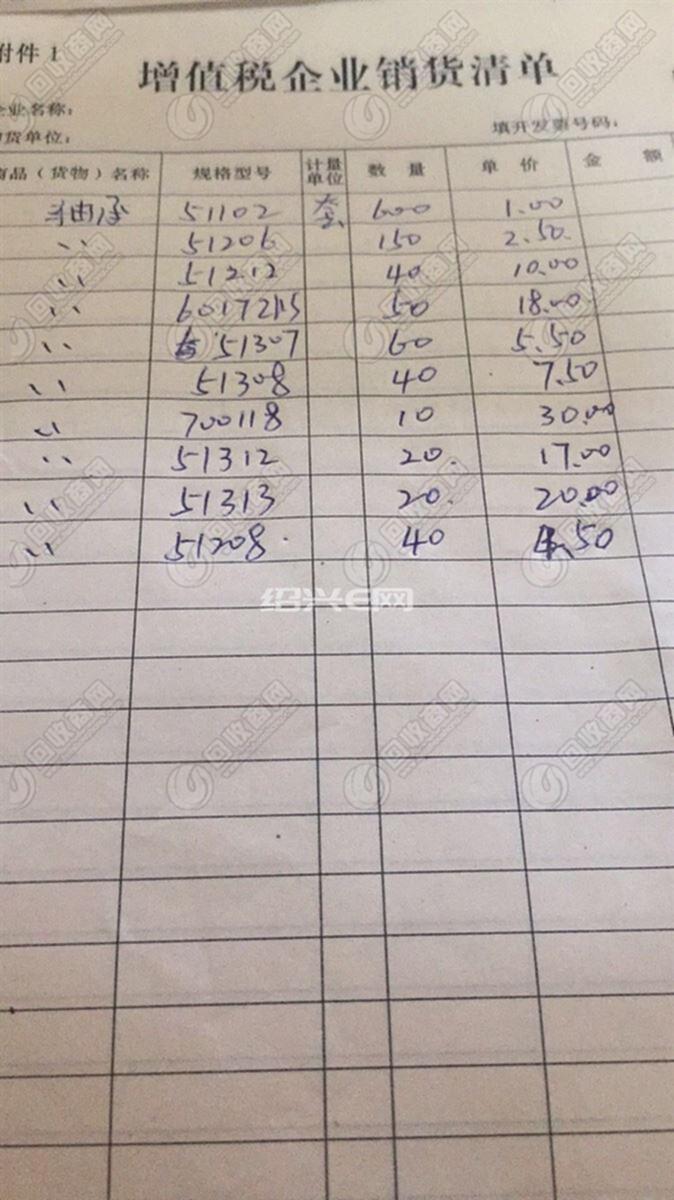 附件1
增值税企业销货清单
企业名称：
购货单位： 填开发票号码：
商品（货物）名称 规格型号 计量单位 数量 单价 金额
轴承 51102 套 600 1.00
〃 51206 150 2.50
〃 51212 40 10.00
〃 60172RS 50 18.00
〃 51307 60 5.50
〃 51308 40 7.50
〃 700118 10 30.00
〃 51312 20. 17.00
〃 51313 20. 20.00
〃 51208. 40 4.50
绍兴E网
回收商网